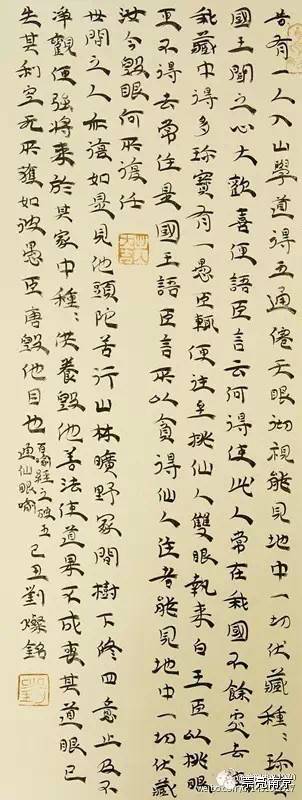 昔有一人入山學道得五通僊天眼徹視能見地中一切伏藏種々珍寶
國王聞之心大歡喜便語臣言云何得使此人常在我國不餘處去使
我藏中得多珍寶有一愚臣輒便往至挑仙人雙眼執来白王臣以挑眼
更不得去常住是國王語臣言所以貪得仙人住者能見地中一切伏藏
汝今毀眼何所復任
世間之人亦復如是見他頭陀苦行山林曠野冢間樹下修四意止及不
淨觀便強將来於其家中種々供養毀他善法使道果不成喪其道眼已
失其利空无所獲如彼愚臣唐毀他目也
百喻經之破五
通仙眼喻
己丑劉燦銘